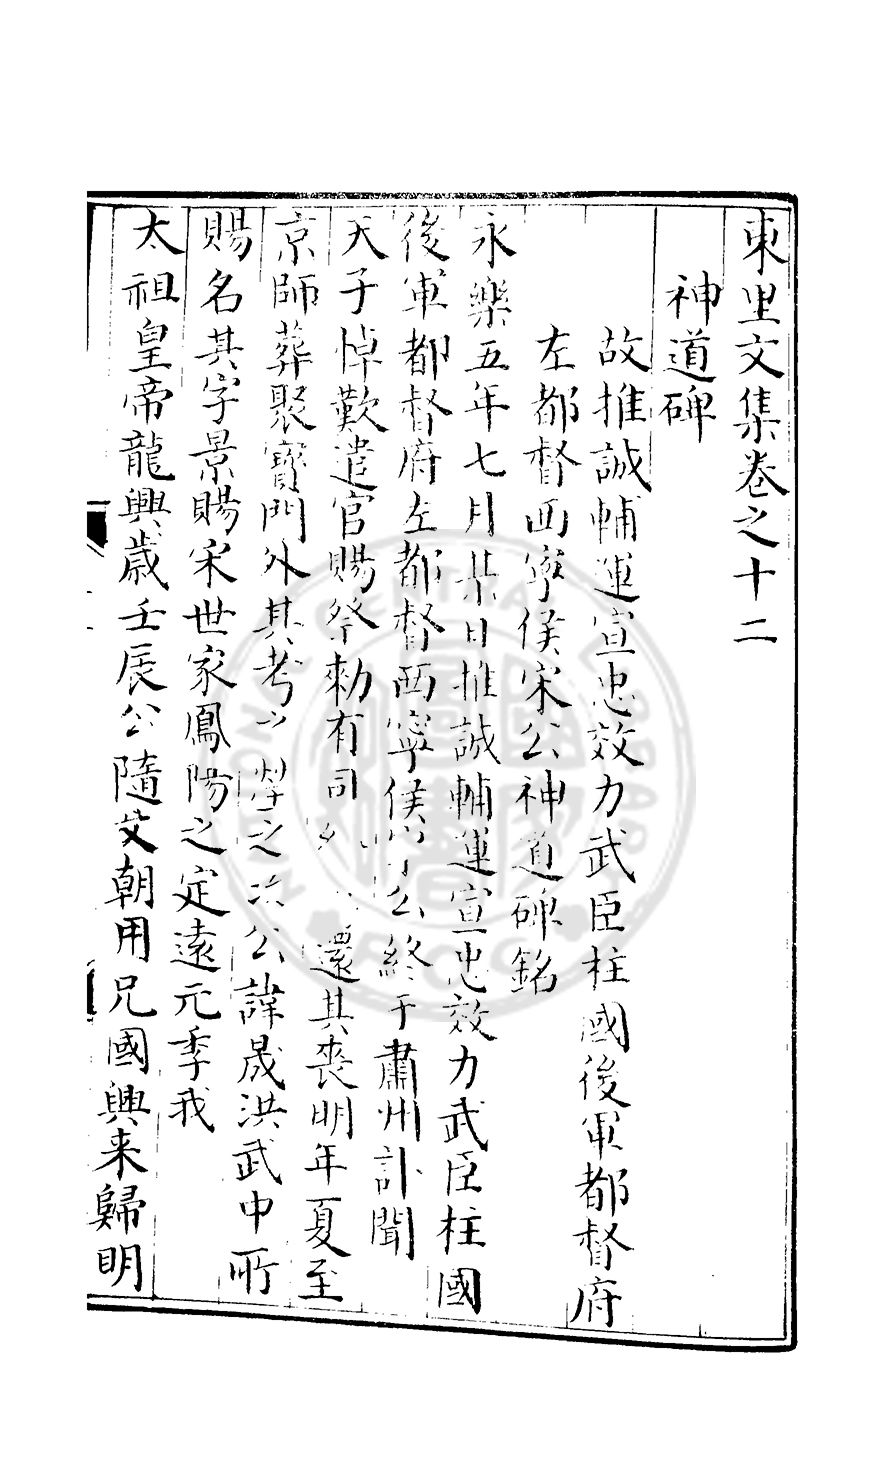 東里文集卷之十二
神道碑
故推誠輔運宣忠效力武臣柱國後軍都督府
左都督西寧侯宋公神道碑銘
永樂五年七月某日推誠輔運宣忠效力武臣柱國
後軍都督府左都督西寧侯宋公終于肅州訃聞
天子悼歎遣官賜祭勑有司 還其喪明年夏至
京師葬聚寶門外其考 塋之次公諱晟洪武中所
賜名其字景賜宋世家鳳陽之定遠元季我
太祖皇帝龍興歲壬辰公隨父朝用兄國興来歸明